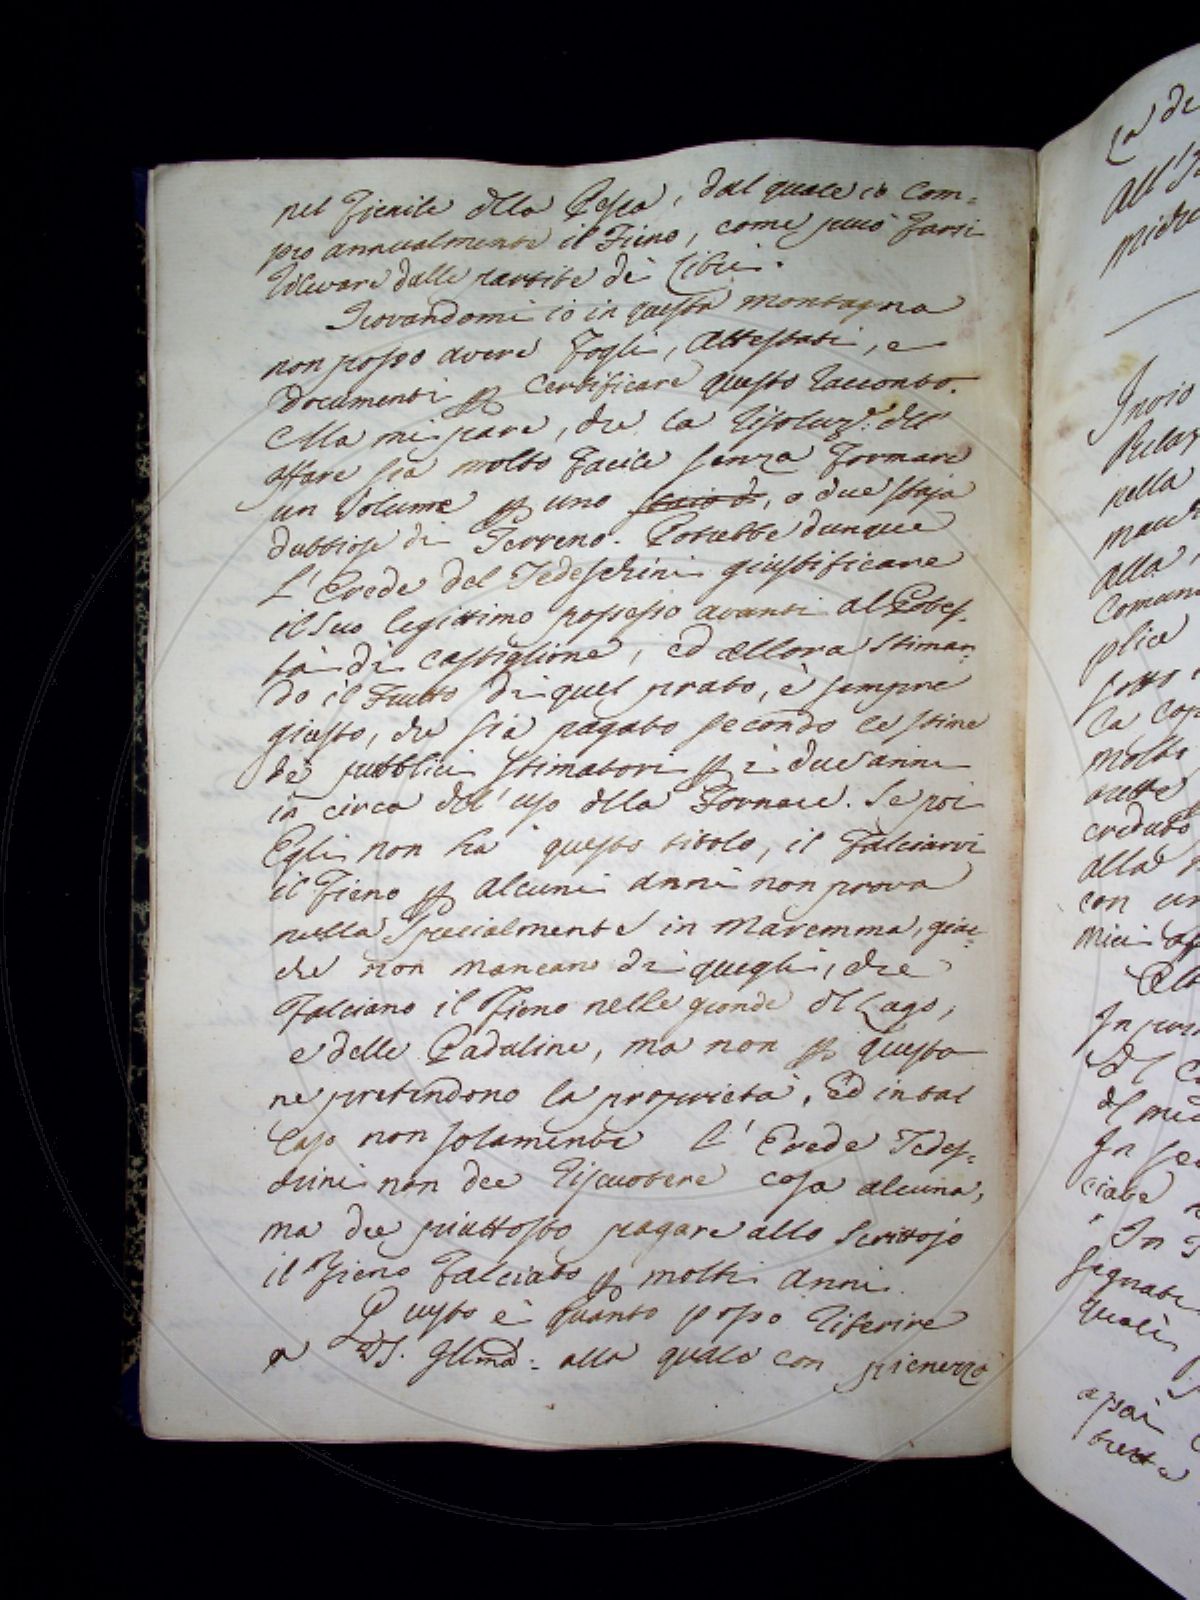 nel Fienile dlla Pesca, dal quale io com=
pro annualmente il Fieno, come può farsi
rilevare dalle partite de' Libri.
Trovandomi io in questa montagna
non posso avere Fogli, Attestati, e
Documenti p certificare questo racconto.
Ma mi pare, che la risoluz.e dell'
affare sia molto facile senza formare
un Volume p uno, o due staja
dubbiose di Terreno. Potrebbe dunque
L'Erede del Tedeschini giustificare
il suo legittimo possesso avanti al Potes-
tà di Castiglione, ed allora stiman-
do il Frutto di quel prato, è sempre
giusto, che sia pagato secondo le stime
de' pubblici stimatori p i due anni
in circa dell'uso dlla Fornace. Se poi
Egli non ha questo titolo, il Falciarvi
il Fieno p alcuni anni non prova
nulla specialmente in Maremma, giac-
chè non mancano di quegli, che
Falciano il Fieno nelle gionde dl Lago,
e delle Paduline, ma non p questo
ne pretendono la proprietà. Ed in tal
caso non solamente L'Erede Tedes=
chini non dee riscuotere cosa alcuna,
ma dee piuttosto pagare allo Scrittojo
il Fieno Falciato p molti anni.
Questo è quanto posso riferire
a VS. Illma: alla quale con pienezza
La de
all'
Invio
nella
alla
Comuni
plice
sotto
la cop
molto
creduto
alla
con un
mici
In pri
dl
dl
In se
ciate
" In
segnate
quali